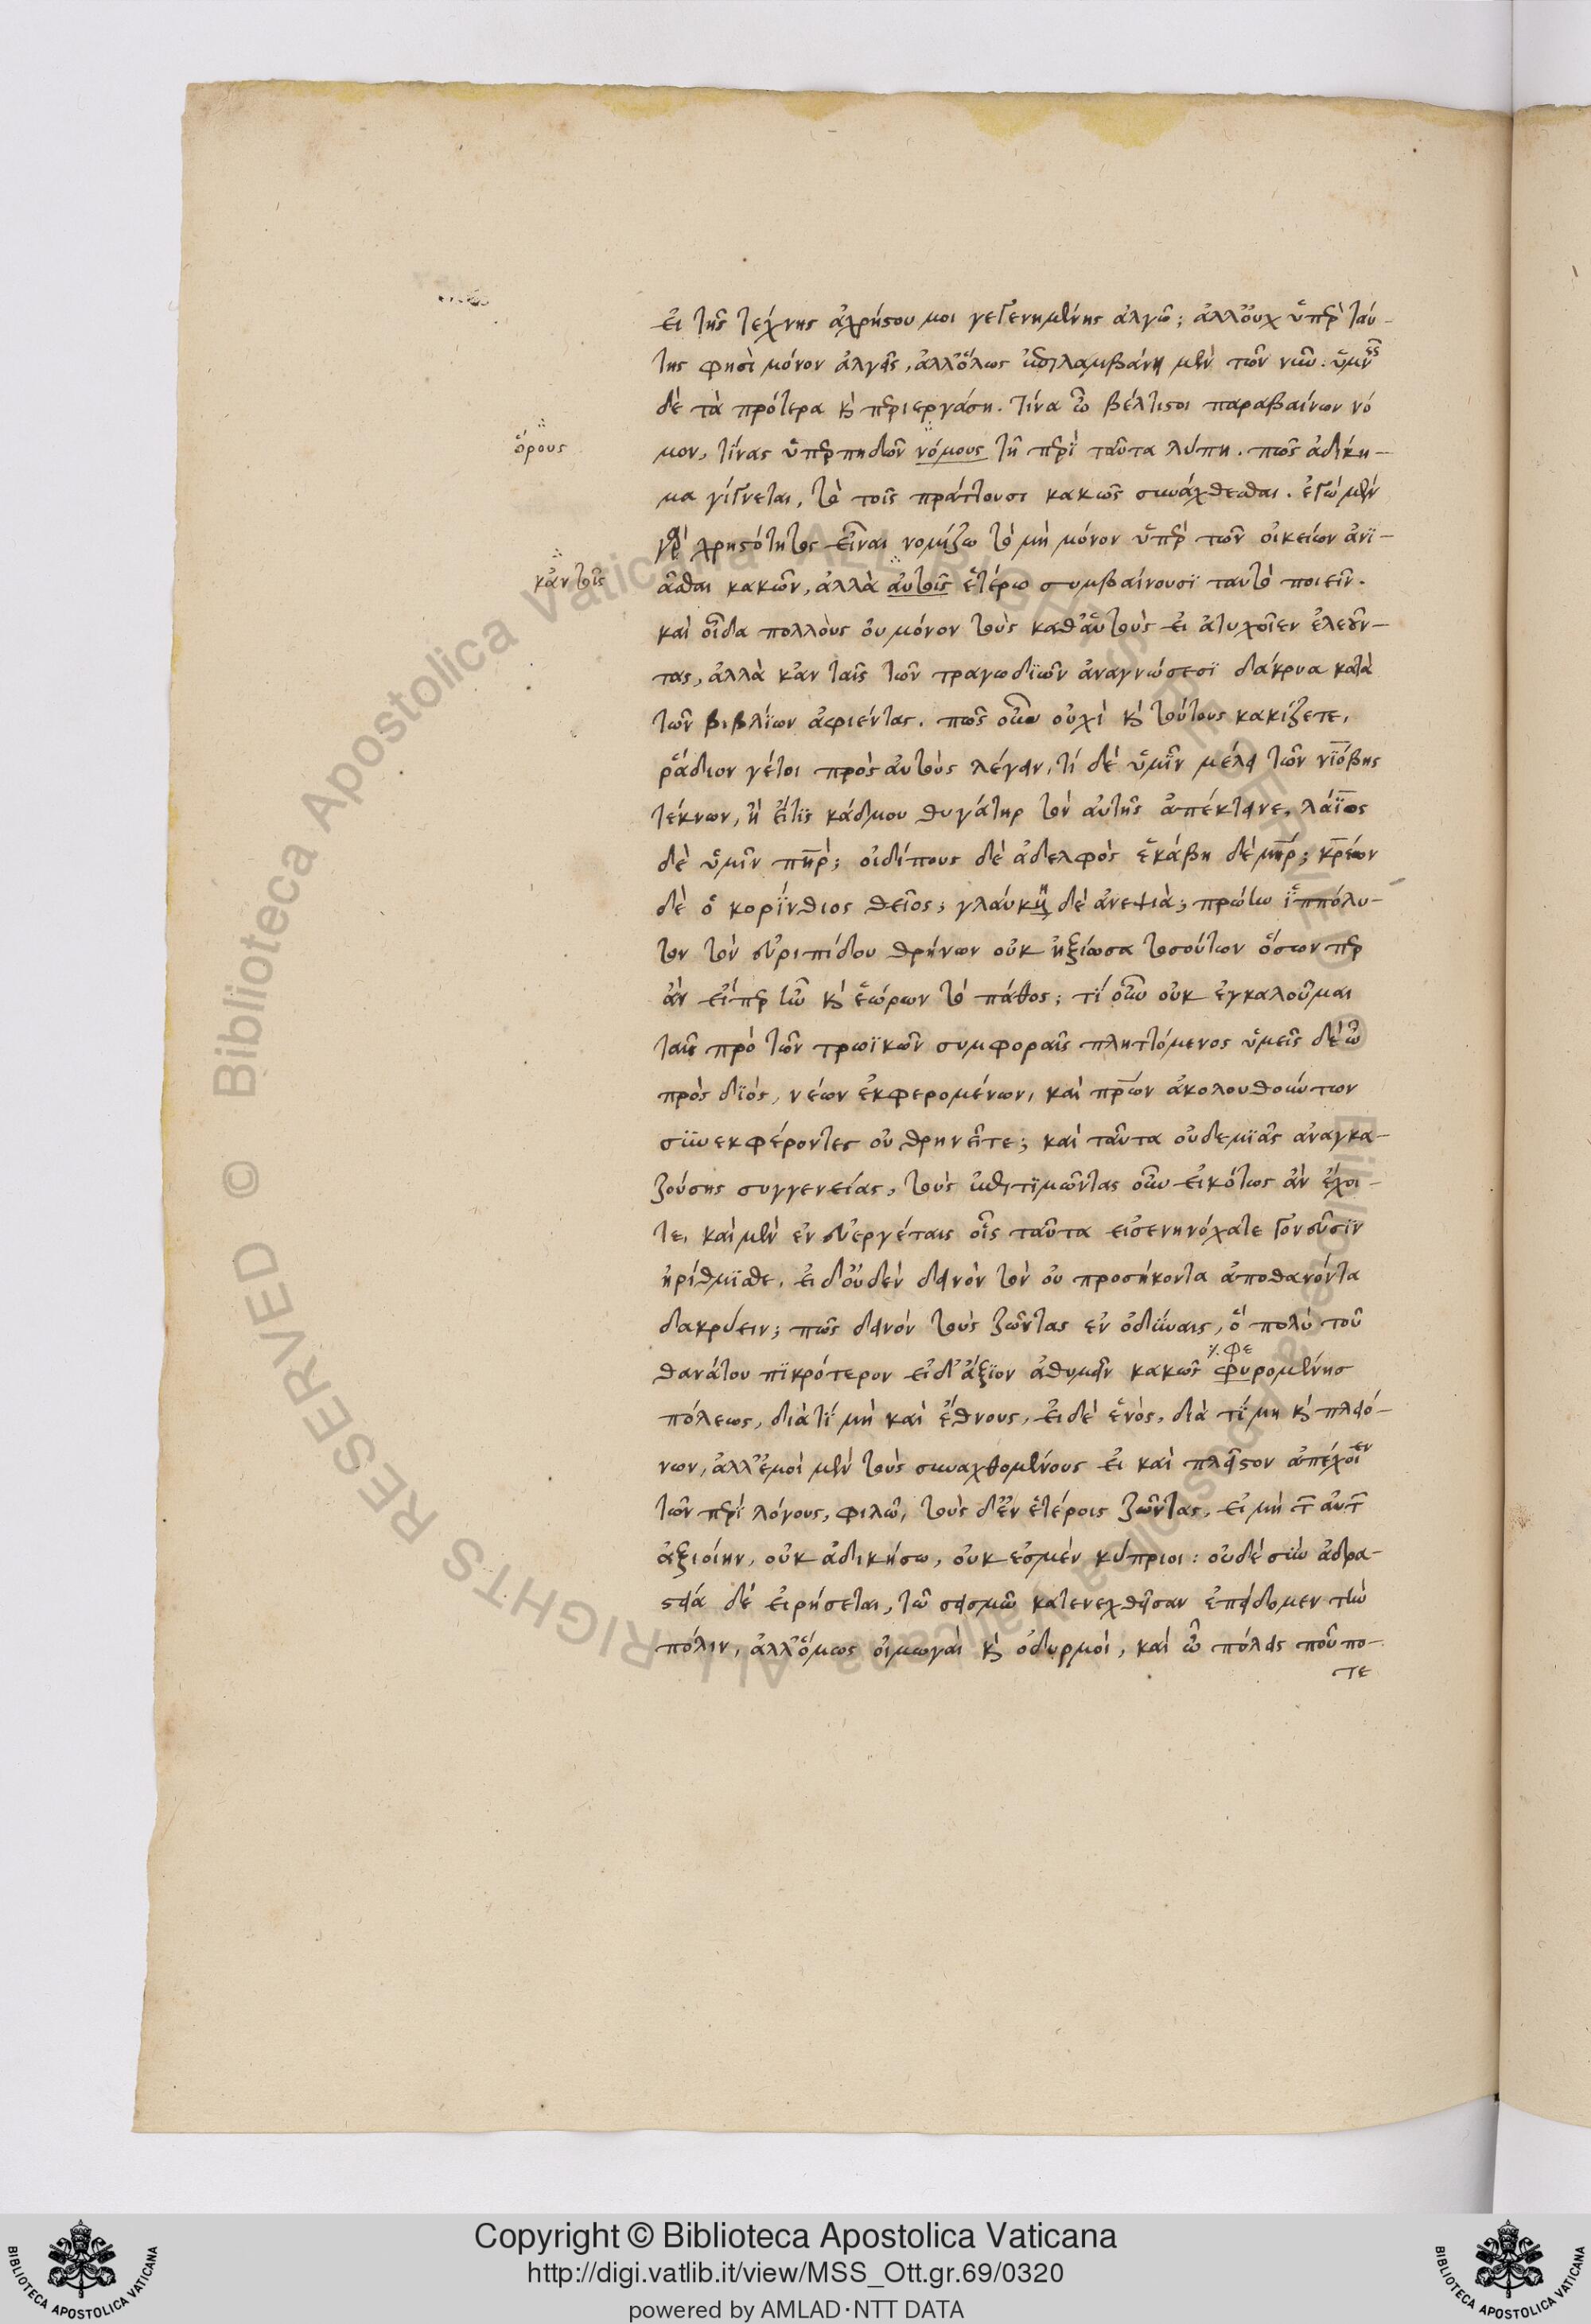 εἰ τῆς τέχνης ἀχρήστου μοι γεγενημένης ἀλγῶ; ἀλλ' οὐχ ὑπὲρ ταύ-
της φησὶ μόνον ἀλγεῖς, ἀλλ' ὅλως ἐπιλαμβάνῃ μὲν τῶν νῦν. ὑμεῖς
δὲ τὰ πρότερα κὶ περιεργάση. τίνα ὦ βέλτιστοι παραβαίνων νό
ὅρους
μον, τίνας ὑπερπηδῶν νόμους τῆ περὶ ταῦτα λύπη. πῶς ἀδίκη-
μα γίγνεται, τὸ τοῖς πράττουσι κακῶς συνάχθεσθαι. ἐγὼ μὲν
γὰρ χρηστότητος εἶναι νομίζω τὸ μὴ μόνον ὑπὲρ τῶν οἰκείων ἀνϊ-
κἀν τοῖς
ᾶσθαι κακῶν, ἀλλὰ αὐτοῖς ἑτέρω συμβαίνουσϊ ταυτὸ ποιεῖν.
καὶ οἶδα πολλοὺς οὐ μόνον τοὺς καθ' αὑτοὺς εἰ ἀτυχοῖεν ἐλεοῦν-
τας, ἀλλὰ κἀν ταῖς τῶν τραγωδϊῶν ἀναγνώσεσϊ δάκρυα κατὰ
τῶν βιβλίων ἀφιέντας. πῶς οὖν οὐχὶ κὶ τούτους κακίζετε,
ῥάδιον γέτοι πρὸς αὐτοὺς λέγειν, τί δὲ ὑμῖν μέλει τῶν νϊόβης
τέκνων, ἢ εἴτις κάδμου θυγάτηρ τὸν αὐτῆς ἀπέκτεινε, λάϊος
δὲ ὑμῖν πηρ; οἰδίπους δὲ ἀδελφὸς ἑκάβη δὲ μηρ; κρέων
δὲ ὁ κορίνθιος θεῖος; γλαύκη δὲ ἀνεψιὰ; πρώτω ἱππόλυ-
τον τὸν εὐριπίδου θρήνων οὐκ ἠξίωσα τοσούτων ὅσων περ
ἂν εἴπερ τῶ κὶ ἑώρων τὸ πάθος; τί οὖν οὐκ ἐγκαλοῦμαι
ταῖς πρὸ τῶν τρωϊκῶν συμφοραῖς πληττόμενος ὑμεῖς δὲ ὦ
πρὸς διός, νέων ἐκφερομένων, καὶ πρων ἀκολουθούντων
συνεκφέροντες οὐ θρηνεῖτε; καὶ ταῦτα οὐδεμϊᾶς ἀναγκα-
ζούσης συγγενείας, τοὺς ἐπιτϊμῶντας οὖν εἰκότως ἂν ἔχοι-
τε, καὶ μὲν ἐν εὐεργέταις οἷς ταῦτα εἰσενηνόχατε γονεῦσϊν
ἠρίθμϊσθε, εἰ δ' οὐδὲν δεινὸν τὸν οὐ προσήκοντα ἀποθανόντα
δακρύειν; πῶς δεινόν τοὺς ζῶντας ἐν ὀδύναις, ὃ πολὺ τοῦ
φε
θανάτου πϊκρότερον εἰ δ' ἄξϊον ἀθυμεῖν κακῶς φυρομένησ
πόλεως, διὰ τί μὴ καὶ ἔθνους, εἰ δὲ ἑνὸς, διὰ τί μὴ κὶ πλειό-
νων, ἀλλ' ἐμοὶ μὲν τοὺς συναχθομένους εἰ καὶ πλεῖστον ἀπέχοιεν
τῶν περὶ λόγους, φιλῶ, τοὺς δ' ἐν ἑτέροις ζῶντας, εἰ μὴ τ αὐτ
ἀξιοίην, οὐκ ἀδικήσω, οὐκ ἐσμὲν κύπριοι: οὐδὲ σὺν ἀδρα-
στεία δὲ εἰρήσεται, τῶ σεισμῶ κατενεχθεῖσαν ἐπείδομεν τὴν
πόλιν, ἀλλ' ὅμως οἰμωγαὶ κὶ ὀδυρμοὶ, καὶ ὦ πόλεις ποῦ πο-
τε
Copyright © Biblioteca Apostolica Vaticana
http://digi.vatlib.it/view/MSS_Ott.gr.69/0320
powered by AMLAD·NTT DATA